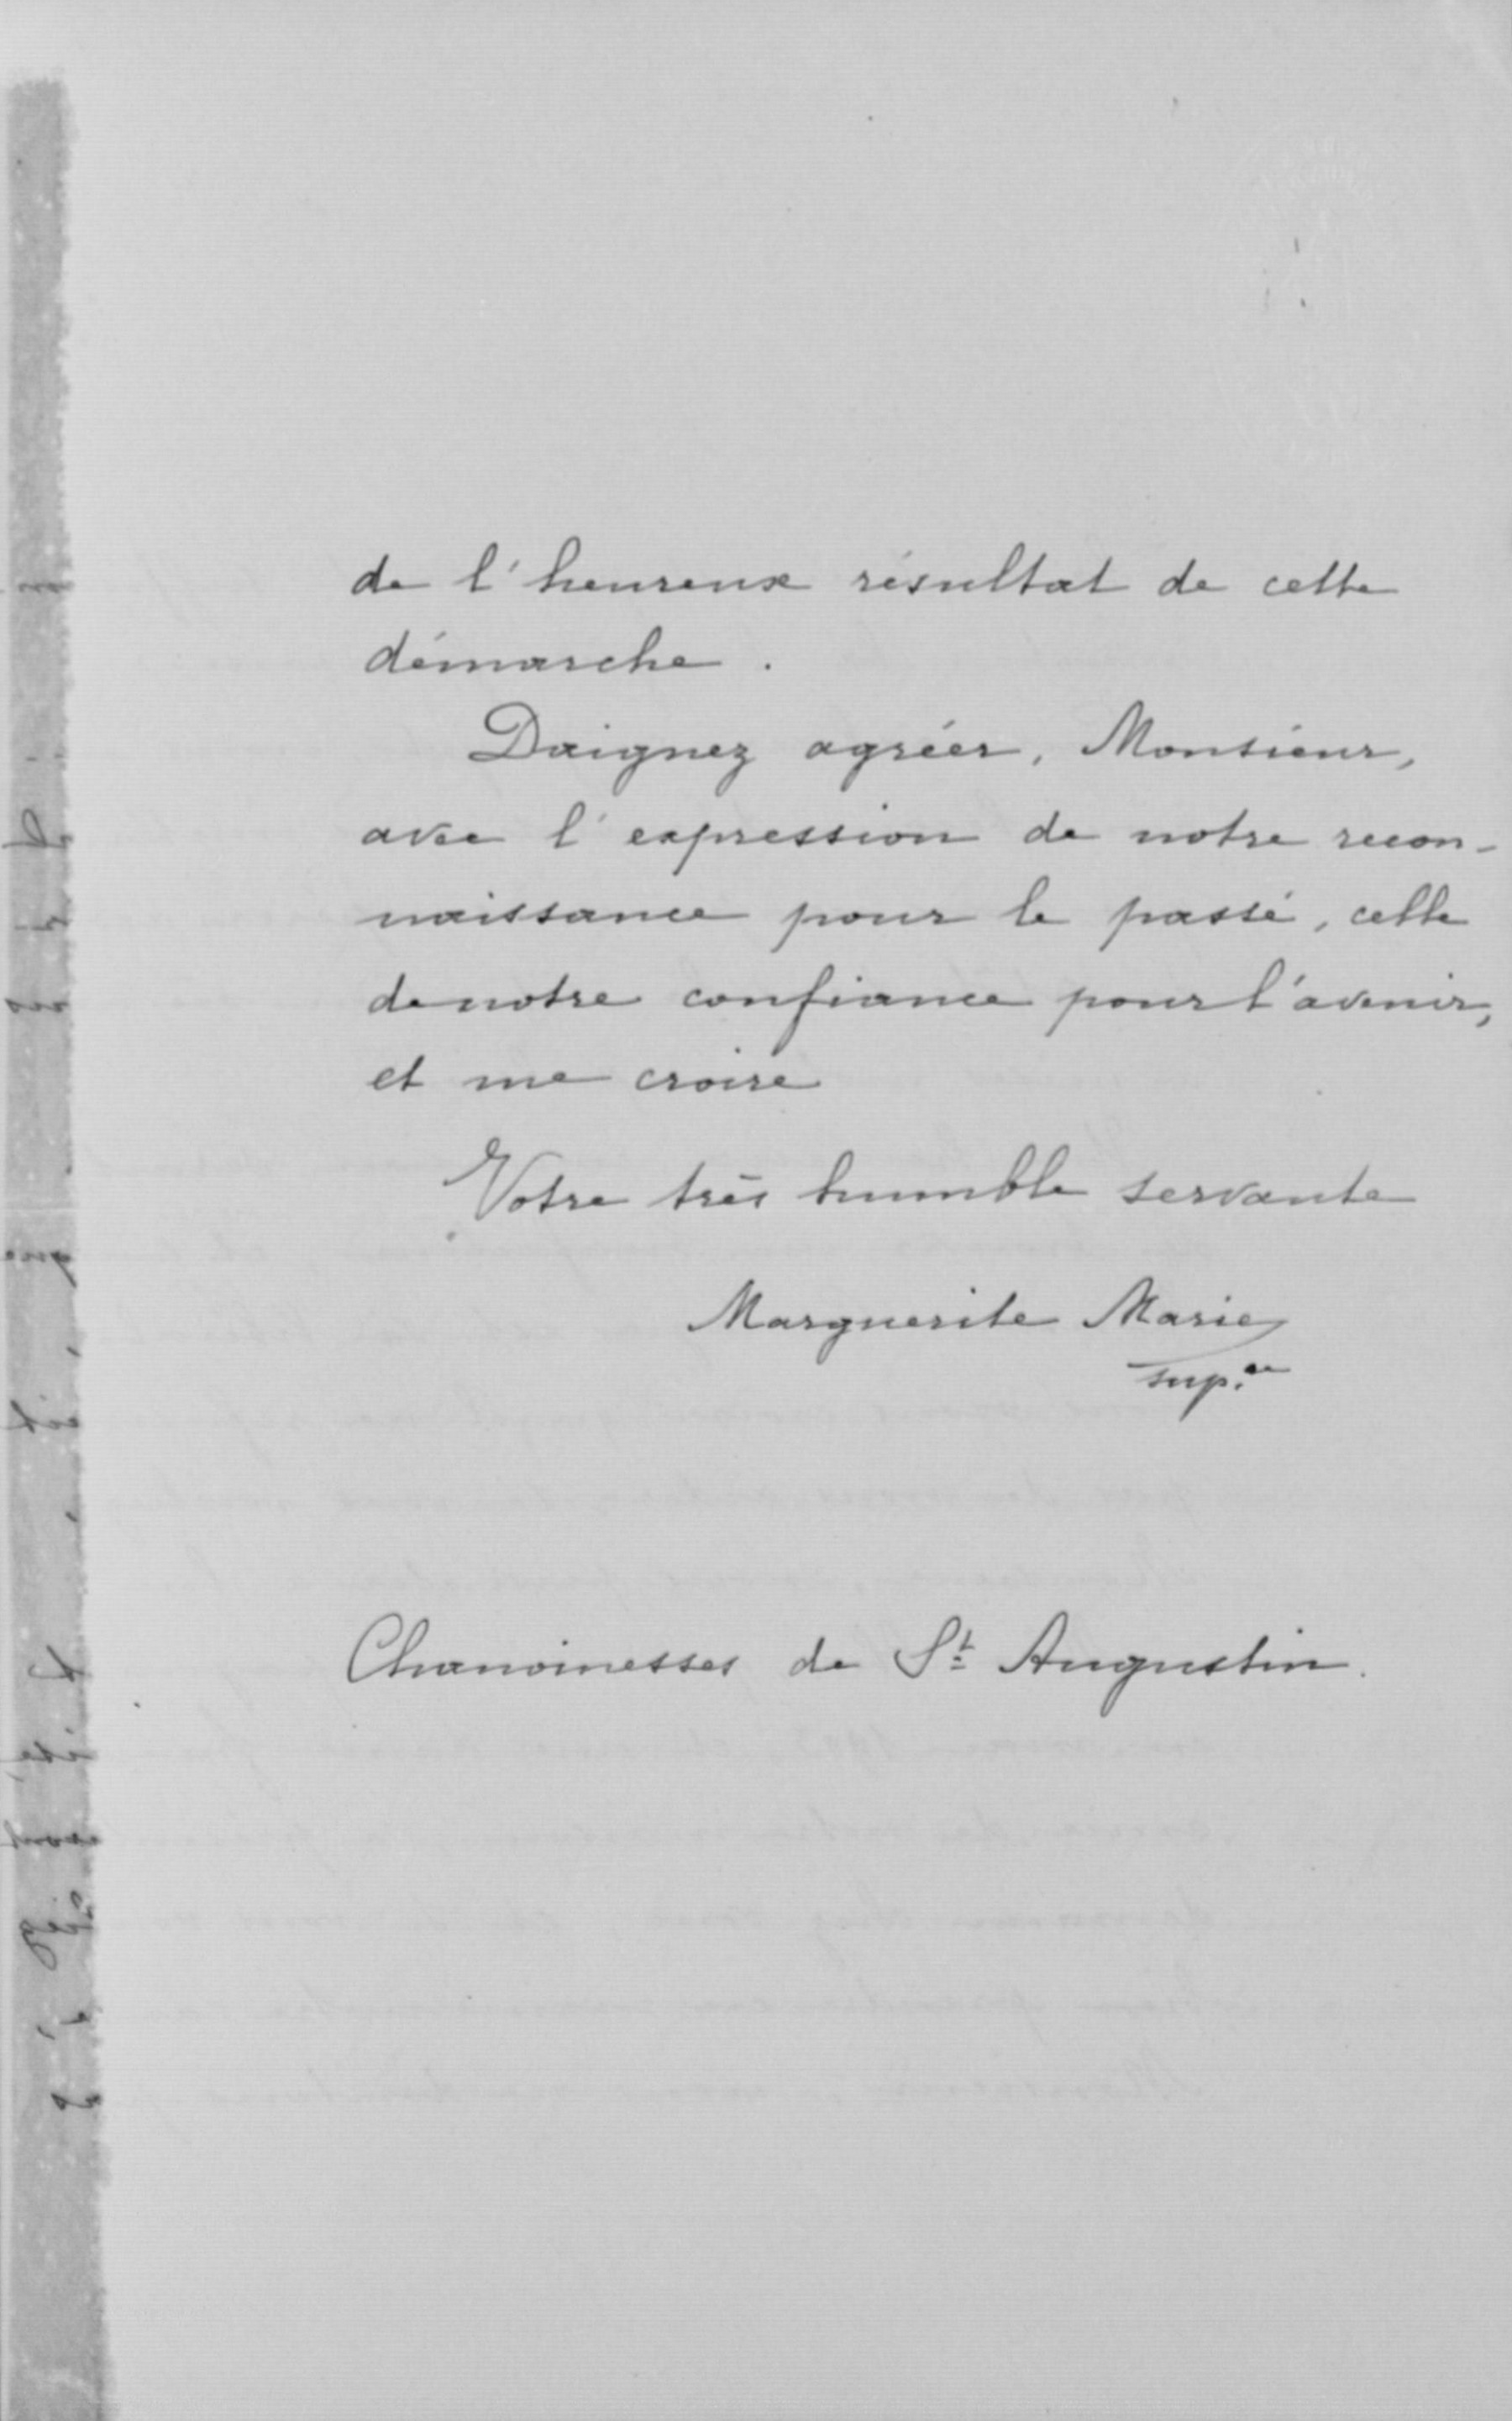 de l'heureux résultat de cette
démarche.
Daignez agréer, Monsieur,
avec l'expression de notre recon-
naissance pour le passé, celle
de notre confiance pour l'avenir,
et me croire
Votre très humble servante
Marguerite Marie
sup.re
Chanoinesses de St Augustin.